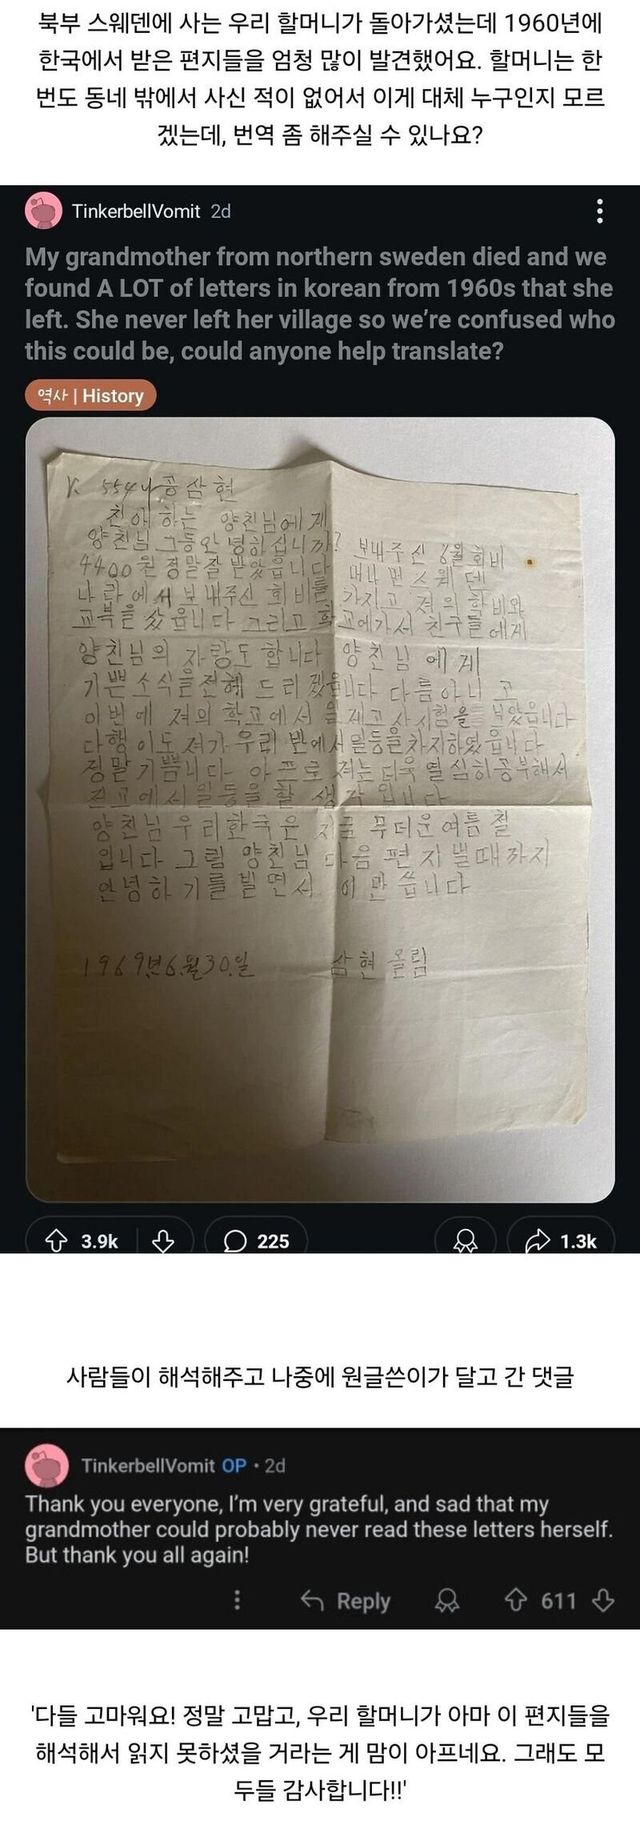 북부 스웨덴에 사는 우리 할머니가 돌아가셨는데 1960년에
한국에서 받은 편지들을 엄청 많이 발견했어요. 할머니는 한
번도 동네 밖에서 사신 적이 없어서 이게 대체 누구인지 모르
겠는데, 번역 좀 해주실 수 있나요?
TinkerbellVomit 2d
My grandmother from northern sweden died and we
found A LOT of letters in korean from 1960s that she
left. She never left her village so we're confused who
this could be, could anyone help translate?
역사 | History
K 554 공삼현
친애하는 양친님에게
양친님 그동안 녕하십니까? 보내주신 6월회비
4400원 정말잘 받았읍니다 머나먼스웨덴
나라에서 보내주신 회비를 가지고 저의 학비와
교복을 샀읍니다 그리고 학교에가서 친구들에게
양친님의 자랑도 합니다 양친님에게
기쁜소식을전해 드리겠읍니다 다름아니고
이번에 저의 학교에서 고사시험을
다행이도 저가 우리 반에서일등을차지하였읍니다
정말기쁨니다 아프로 저는더욱열심히공부해서
전교에서일등을할 생각입니다
양친님 우리한국은 지금 무더운여름철
입니다 그럼 양친님 다음 편지낼때까지
안녕하기를빌면서 이만씁니다
1969년6.월30.일 삼현올림
3.9k 225 1.3k
사람들이 해석해주고 나중에 원글쓴이가 달고 간 댓글
TinkerbellVomit OP • 2d
Thank you everyone, I'm very grateful, and sad that my
grandmother could probably never read these letters herself.
But thank you all again!
Reply 611
'다들 고마워요! 정말 고맙고, 우리 할머니가 아마 이 편지들을
해석해서 읽지 못하셨을 거라는 게 맘이 아프네요. 그래도 모
두들 감사합니다!!'